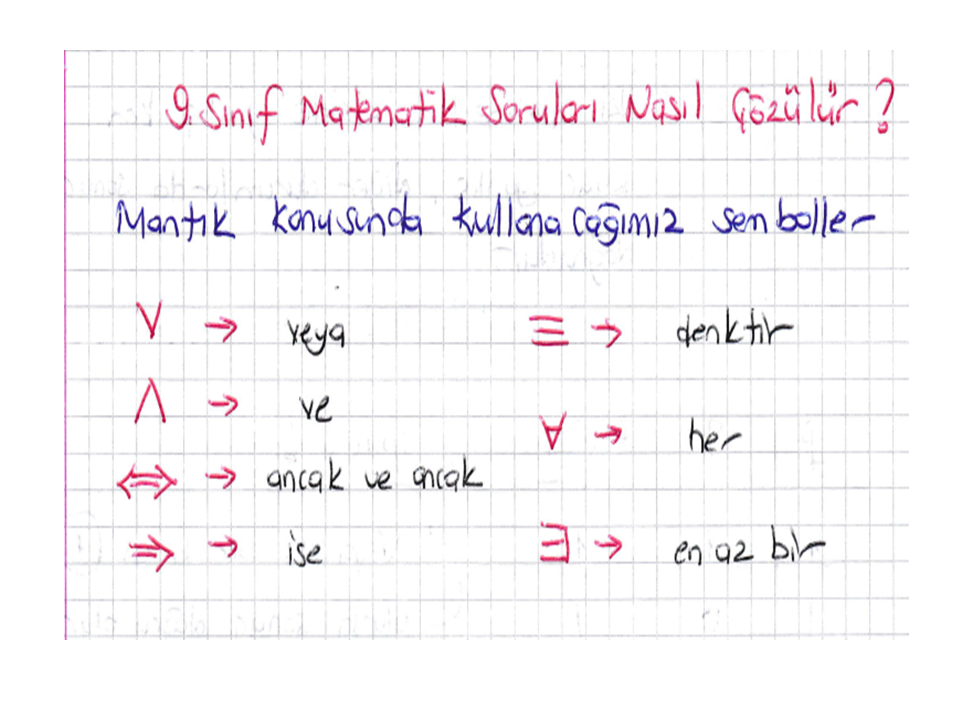 9. Sınıf Matematik Soruları Nasıl Çözülür ?
Mantık konusunda kullanacağımız semboller
∨ → veya
∧ → ve
⇔ → ancak ve ancak
⇒ → ise
≡ → denktir
∀ → her
∃ → en az bir